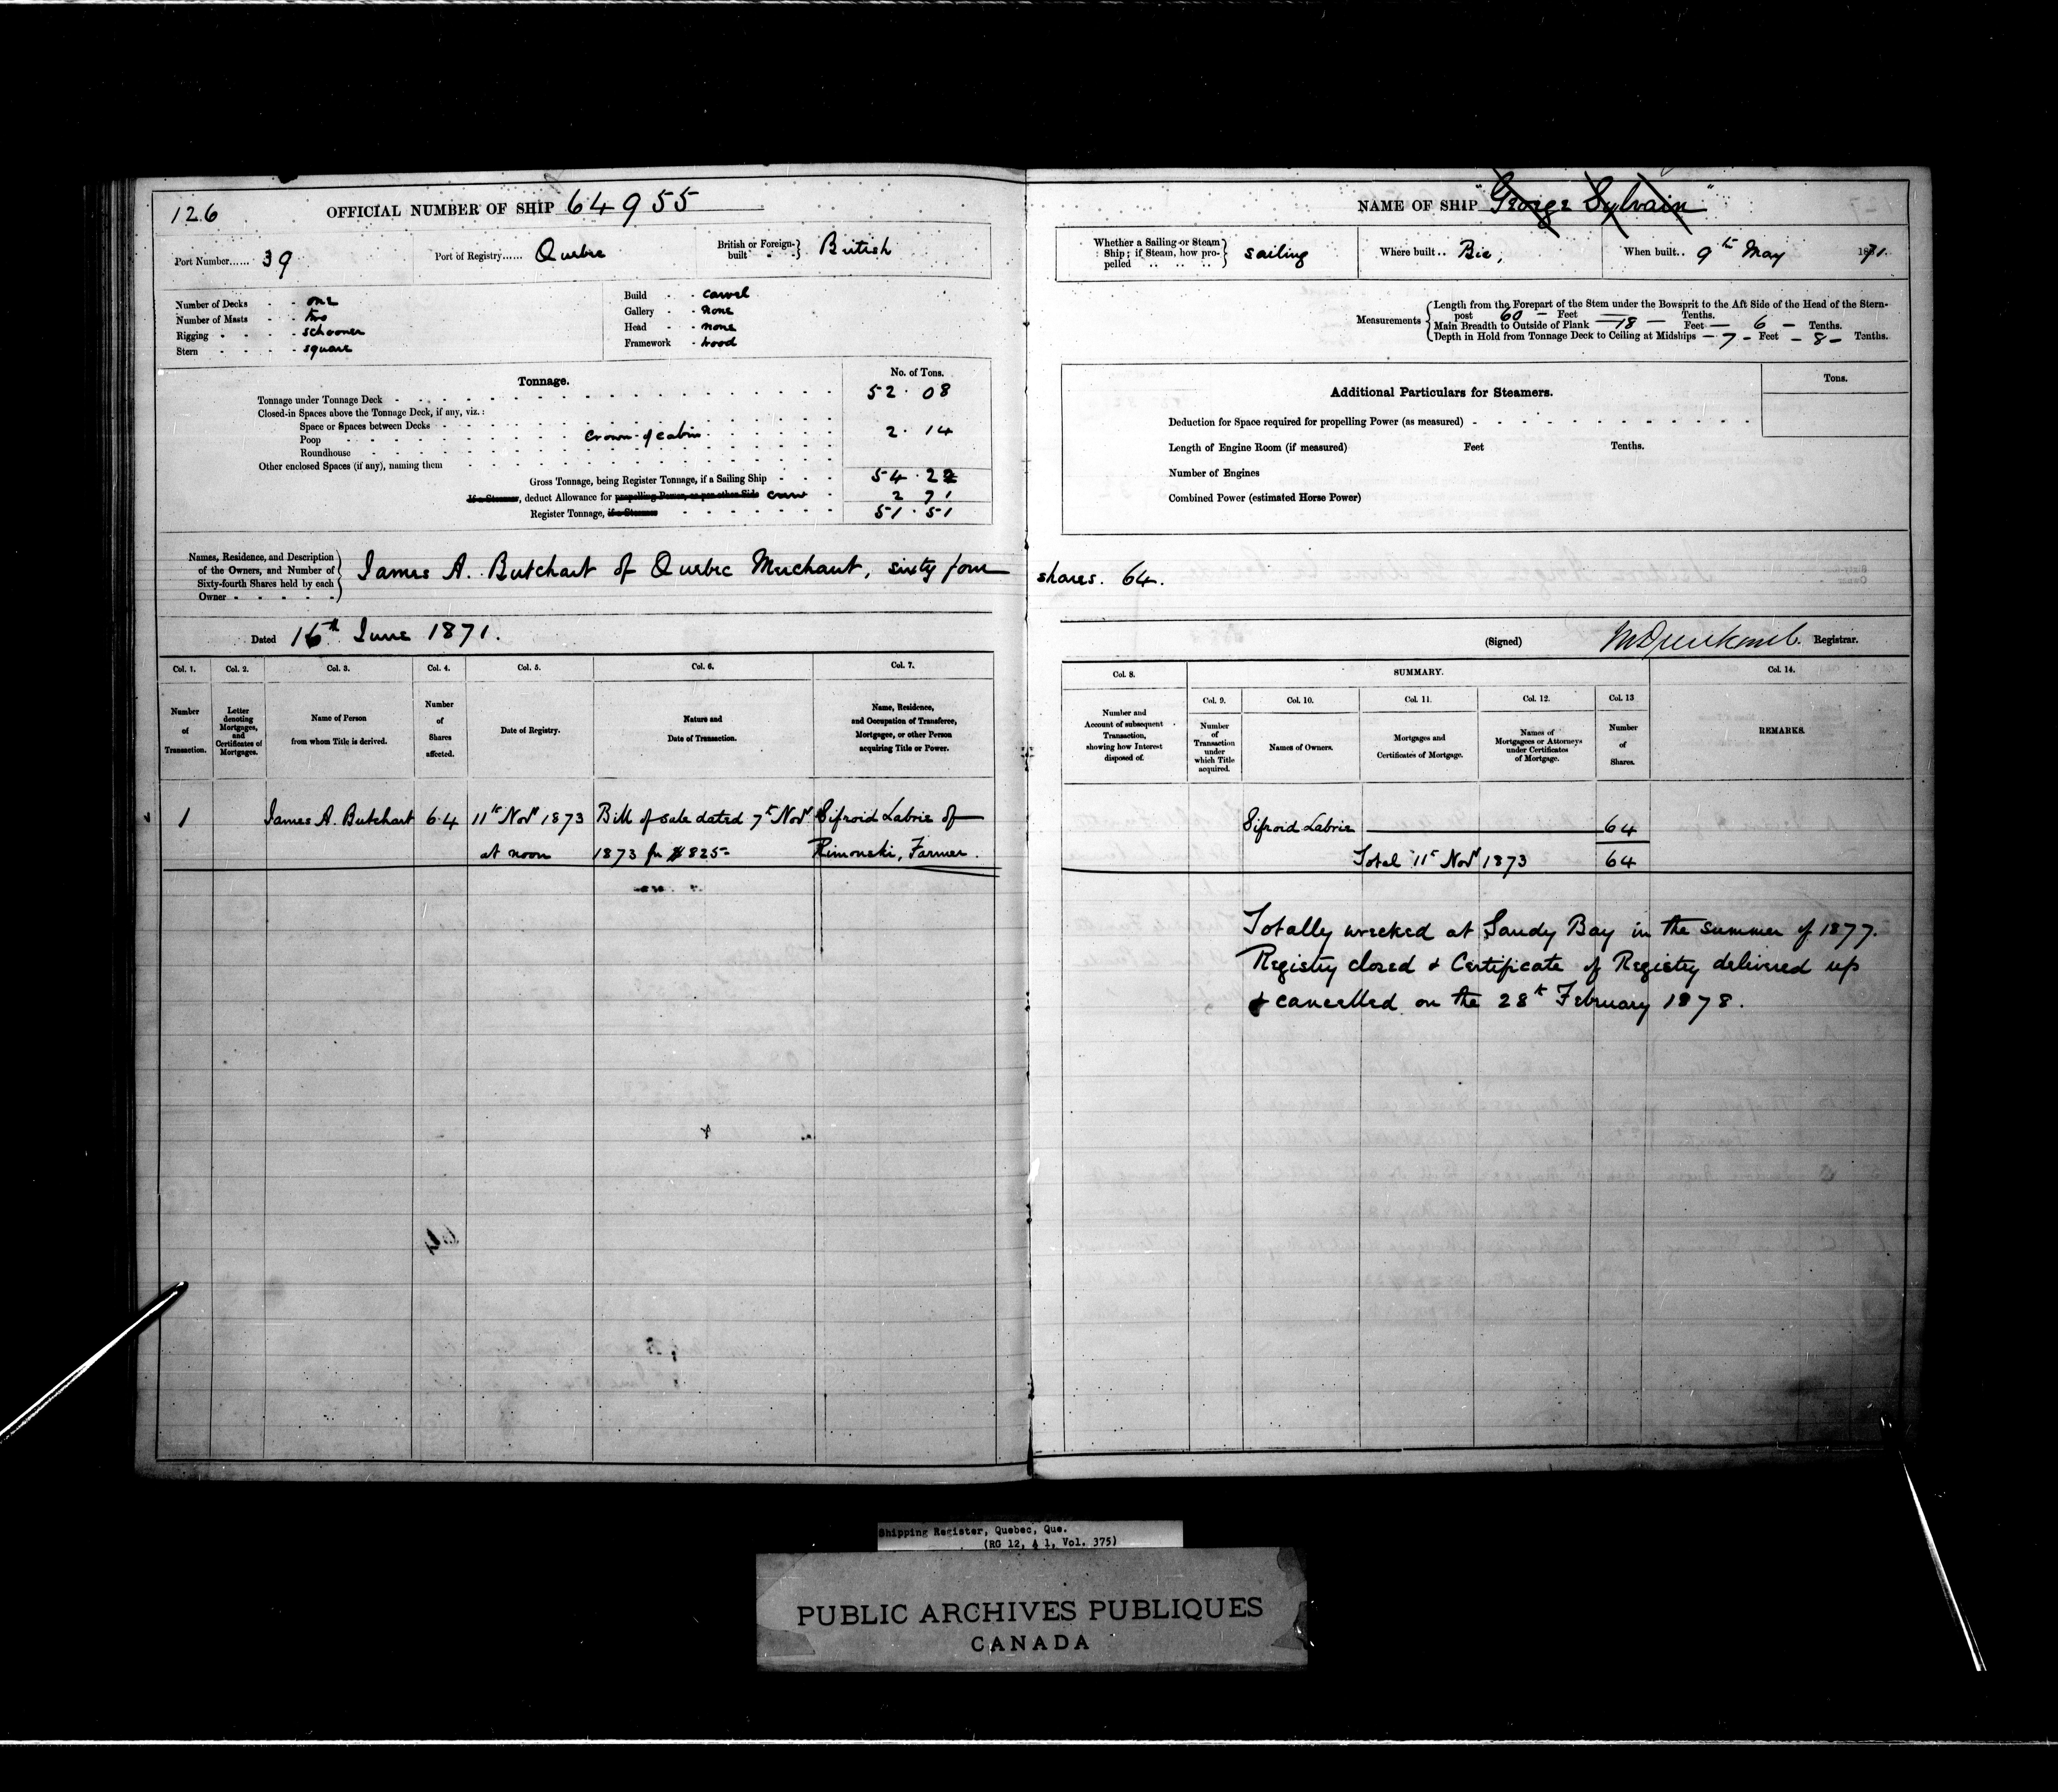 126 OFFICIAL NUMBER OF SHIP 64955
Port Number...... 39 Port of Registry...... Quebec British or Foreign-built British
Number of Decks - - one
Number of Masts - - two
Rigging - - - - schooner
Stern - - - - square
Build - - carvel
Gallery - - none
Head - - none
Framework - wood
Tonnage.
No. of Tons.
Tonnage under Tonnage Deck - 52.08
Closed-in Spaces above the Tonnage Deck, if any, viz.:
Space or Spaces between Decks
Poop crown of cabin 2.14
Roundhouse
Other enclosed Spaces (if any), naming them
Gross Tonnage, being Register Tonnage, if a Sailing Ship 54.22
If a Steamer, deduct Allowance for propelling Power, as per other Side crew 2 71
Register Tonnage, if a Steamer 51.51
Names, Residence, and Description
of the Owners, and Number of
Sixty-fourth Shares held by each
Owner
James A. Butchart of Quebec Merchant, sixty four
Dated 16th June 1871.
Col. 1. Col. 2. Col. 3. Col. 4. Col. 5. Col. 6. Col. 7.
Number of Transaction.
Letter denoting Mortgages, and Certificates of Mortgages.
Name of Person from whom Title is derived.
Number of Shares affected.
Date of Registry.
Nature and Date of Transaction.
Name, Residence, and Occupation of Transferee, Mortgagee, or other Person acquiring Title or Power.
1 James A. Butchart 64 11th Novr 1873 Bill of sale dated 7th Novr Sifroid Labrie of
at noon 1873 for $825- Rimouski, Farmer.
NAME OF SHIP "George Sylvain"
Whether a Sailing or Steam Ship; if Steam, how propelled sailing Where built.. Bic, When built.. 9th May 1871.
Measurements
Length from the Forepart of the Stem under the Bowsprit to the Aft Side of the Head of the Stern-
post 60 - Feet — Tenths.
Main Breadth to Outside of Plank — 18 — Feet — 6 — Tenths.
Depth in Hold from Tonnage Deck to Ceiling at Midships — 7 - Feet - 8 - Tenths.
Additional Particulars for Steamers.
Tons.
Deduction for Space required for propelling Power (as measured)
Length of Engine Room (if measured) Feet Tenths.
Number of Engines
Combined Power (estimated Horse Power)
shares. 64.
(Signed) Registrar.
Col. 8. SUMMARY. Col. 14.
Col. 9. Col. 10. Col. 11. Col. 12. Col. 13
Number and Account of subsequent Transaction, showing how Interest disposed of.
Number of Transaction under which Title acquired.
Names of Owners.
Mortgages and Certificates of Mortgage.
Names of Mortgagees or Attorneys under Certificates of Mortgage.
Number of Shares.
REMARKS.
Sifroid Labrie 64
Total 11th Novr 1873 64
Totally wrecked at Sandy Bay in the summer of 1877.
Registry closed & Certificate of Registry delivered up
& cancelled on the 28th February 1878.
Shipping Register, Quebec, Que.
(RG 12, A 1, Vol. 375)
PUBLIC ARCHIVES PUBLIQUES
CANADA